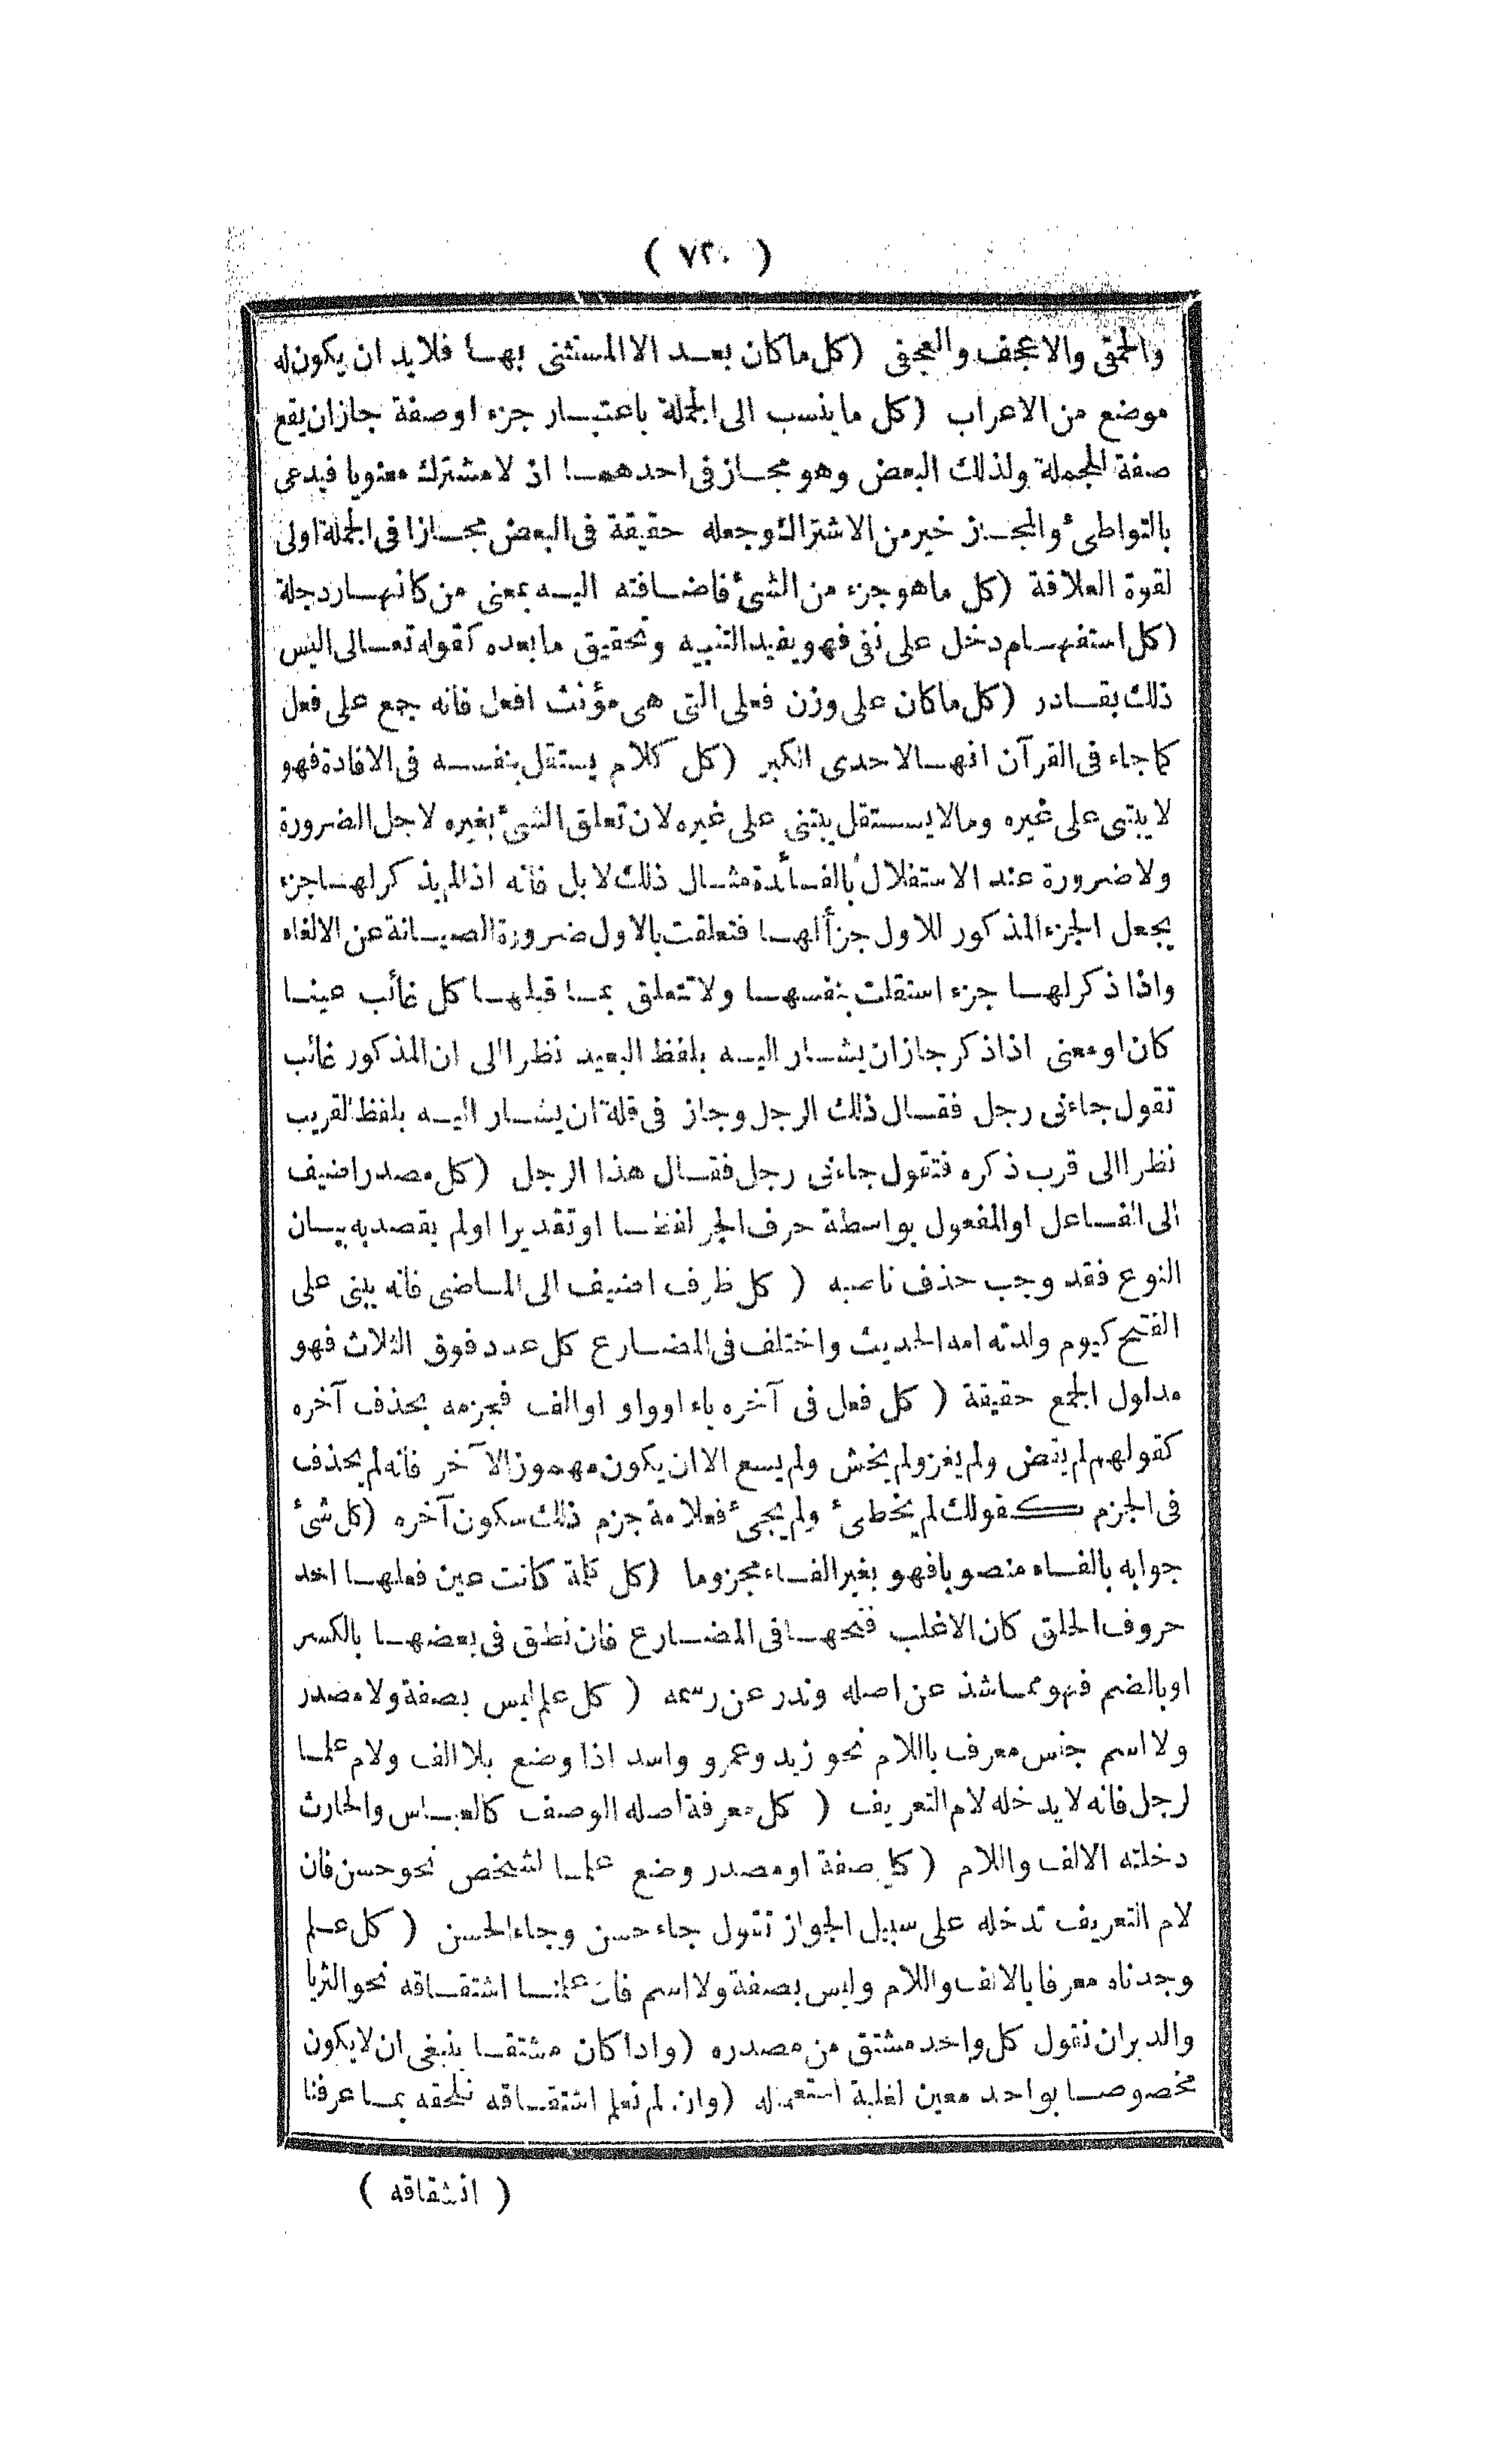 ( ٧٢٠ )
والحمقى والاعجف والعجفى (كل ما كان بعد الا المستثنى بها فلابد ان يكون له
موضع من الاعراب (كل ما ينسب الى الجملة باعتبار جزء او صفة جاز ان يقع
صفة للجملة ولذلك البعض وهو مجاز فى احدهما اذ لا مشترك معنويا فيدعى
بالتواطئ والمجاز خير من الاشتراك وجعله حقيقة فى البعض مجازا فى الجملة اولى
لقوة العلاقة (كل ما هو جزء من الشئ فاضافته اليه بمعنى من كانهار دجلة
(كل استفهام دخل على نفى فهو يفيد التنبيه وتحقيق ما بعده كقوله تعالى اليس
ذلك بقادر (كل ما كان على وزن فعلى التى هى مؤنث افعل فانه جمع على فعل
كما جاء فى القرآن انها لاحدى الكبر (كل كلام يستقل بنفسه فى الافادة فهو
لا يبتنى على غيره وما لا يستقل يبتنى على غيره لان تعلق الشئ بغيره لاجل الضرورة
ولا ضرورة عند الاستقلال بالفائدة مثال ذلك لا بل فانه اذا لم يذكر لها جزء
يجعل الجزء المذكور للاول جزأ لها فتعلقت بالاول ضرورة الصيانة عن الالغاء
واذا ذكر لها جزء استقلت بنفسها ولا تتعلق بما قبلها كل غائب عينا
كان او معنى اذا ذكر جاز ان يشار اليه بلفظ البعيد نظرا الى ان المذكور غائب
تقول جاءنى رجل فقال ذلك الرجل وجاز فى قلة ان يشار اليه بلفظ القريب
نظرا الى قرب ذكره فتقول جاءنى رجل فقال هذا الرجل (كل مصدر اضيف
الى الفاعل او المفعول بواسطة حرف الجر لفظا او تقديرا او لم يقصد به بيان
النوع فقد وجب حذف ناصبه ( كل ظرف اضيف الى الماضى فانه يبنى على
الفتح كيوم ولدته امه الحديث واختلف فى المضارع كل عدد فوق الثلاث فهو
مدلول الجمع حقيقة ( كل فعل فى آخره ياء او واو او الف فجزمه بحذف آخره
كقولهم لم يقض ولم يغز ولم يخش ولم يسع الا ان يكون مهموز الآخر فانه لم يحذف
فى الجزم كقولك لم يخطئ ولم يجئ فعلامة جزم ذلك سكون آخره (كل شئ
جوابه بالفاء منصوبا فهو بغير الفاء مجزوما (كل كلمة كانت عين فعلها احد
حروف الحلق كان الاغلب فتحها فى المضارع فان نطق فى بعضها بالكسر
او بالضم فهو مما شذ عن اصله وندر عن رسمه ( كل علم ليس بصفة ولا مصدر
ولا اسم جنس معرف باللام نحو زيد وعمرو واسد اذا وضع بلا الف ولام علما
لرجل فانه لا يدخله لام التعريف ( كل معرفة اصله الوصف كالعباس والحارث
دخلته الالف واللام (كل صفة او مصدر وضع علما لشخص نحو حسن فان
لام التعريف تدخله على سبيل الجواز تقول جاء حسن وجاء الحسن ( كل علم
وجدناه معرفا بالالف واللام وليس بصفة ولا اسم فان علمنا اشتقاقه نحو الثريا
والدبران نقول كل واحد مشتق من مصدره (واذا كان مشتقا ينبغى ان لا يكون
مخصوصا بواحد معين لغلبة استعماله (وان لم نعلم اشتقاقه نلحقه بما عرفنا
( اشتقاقه )